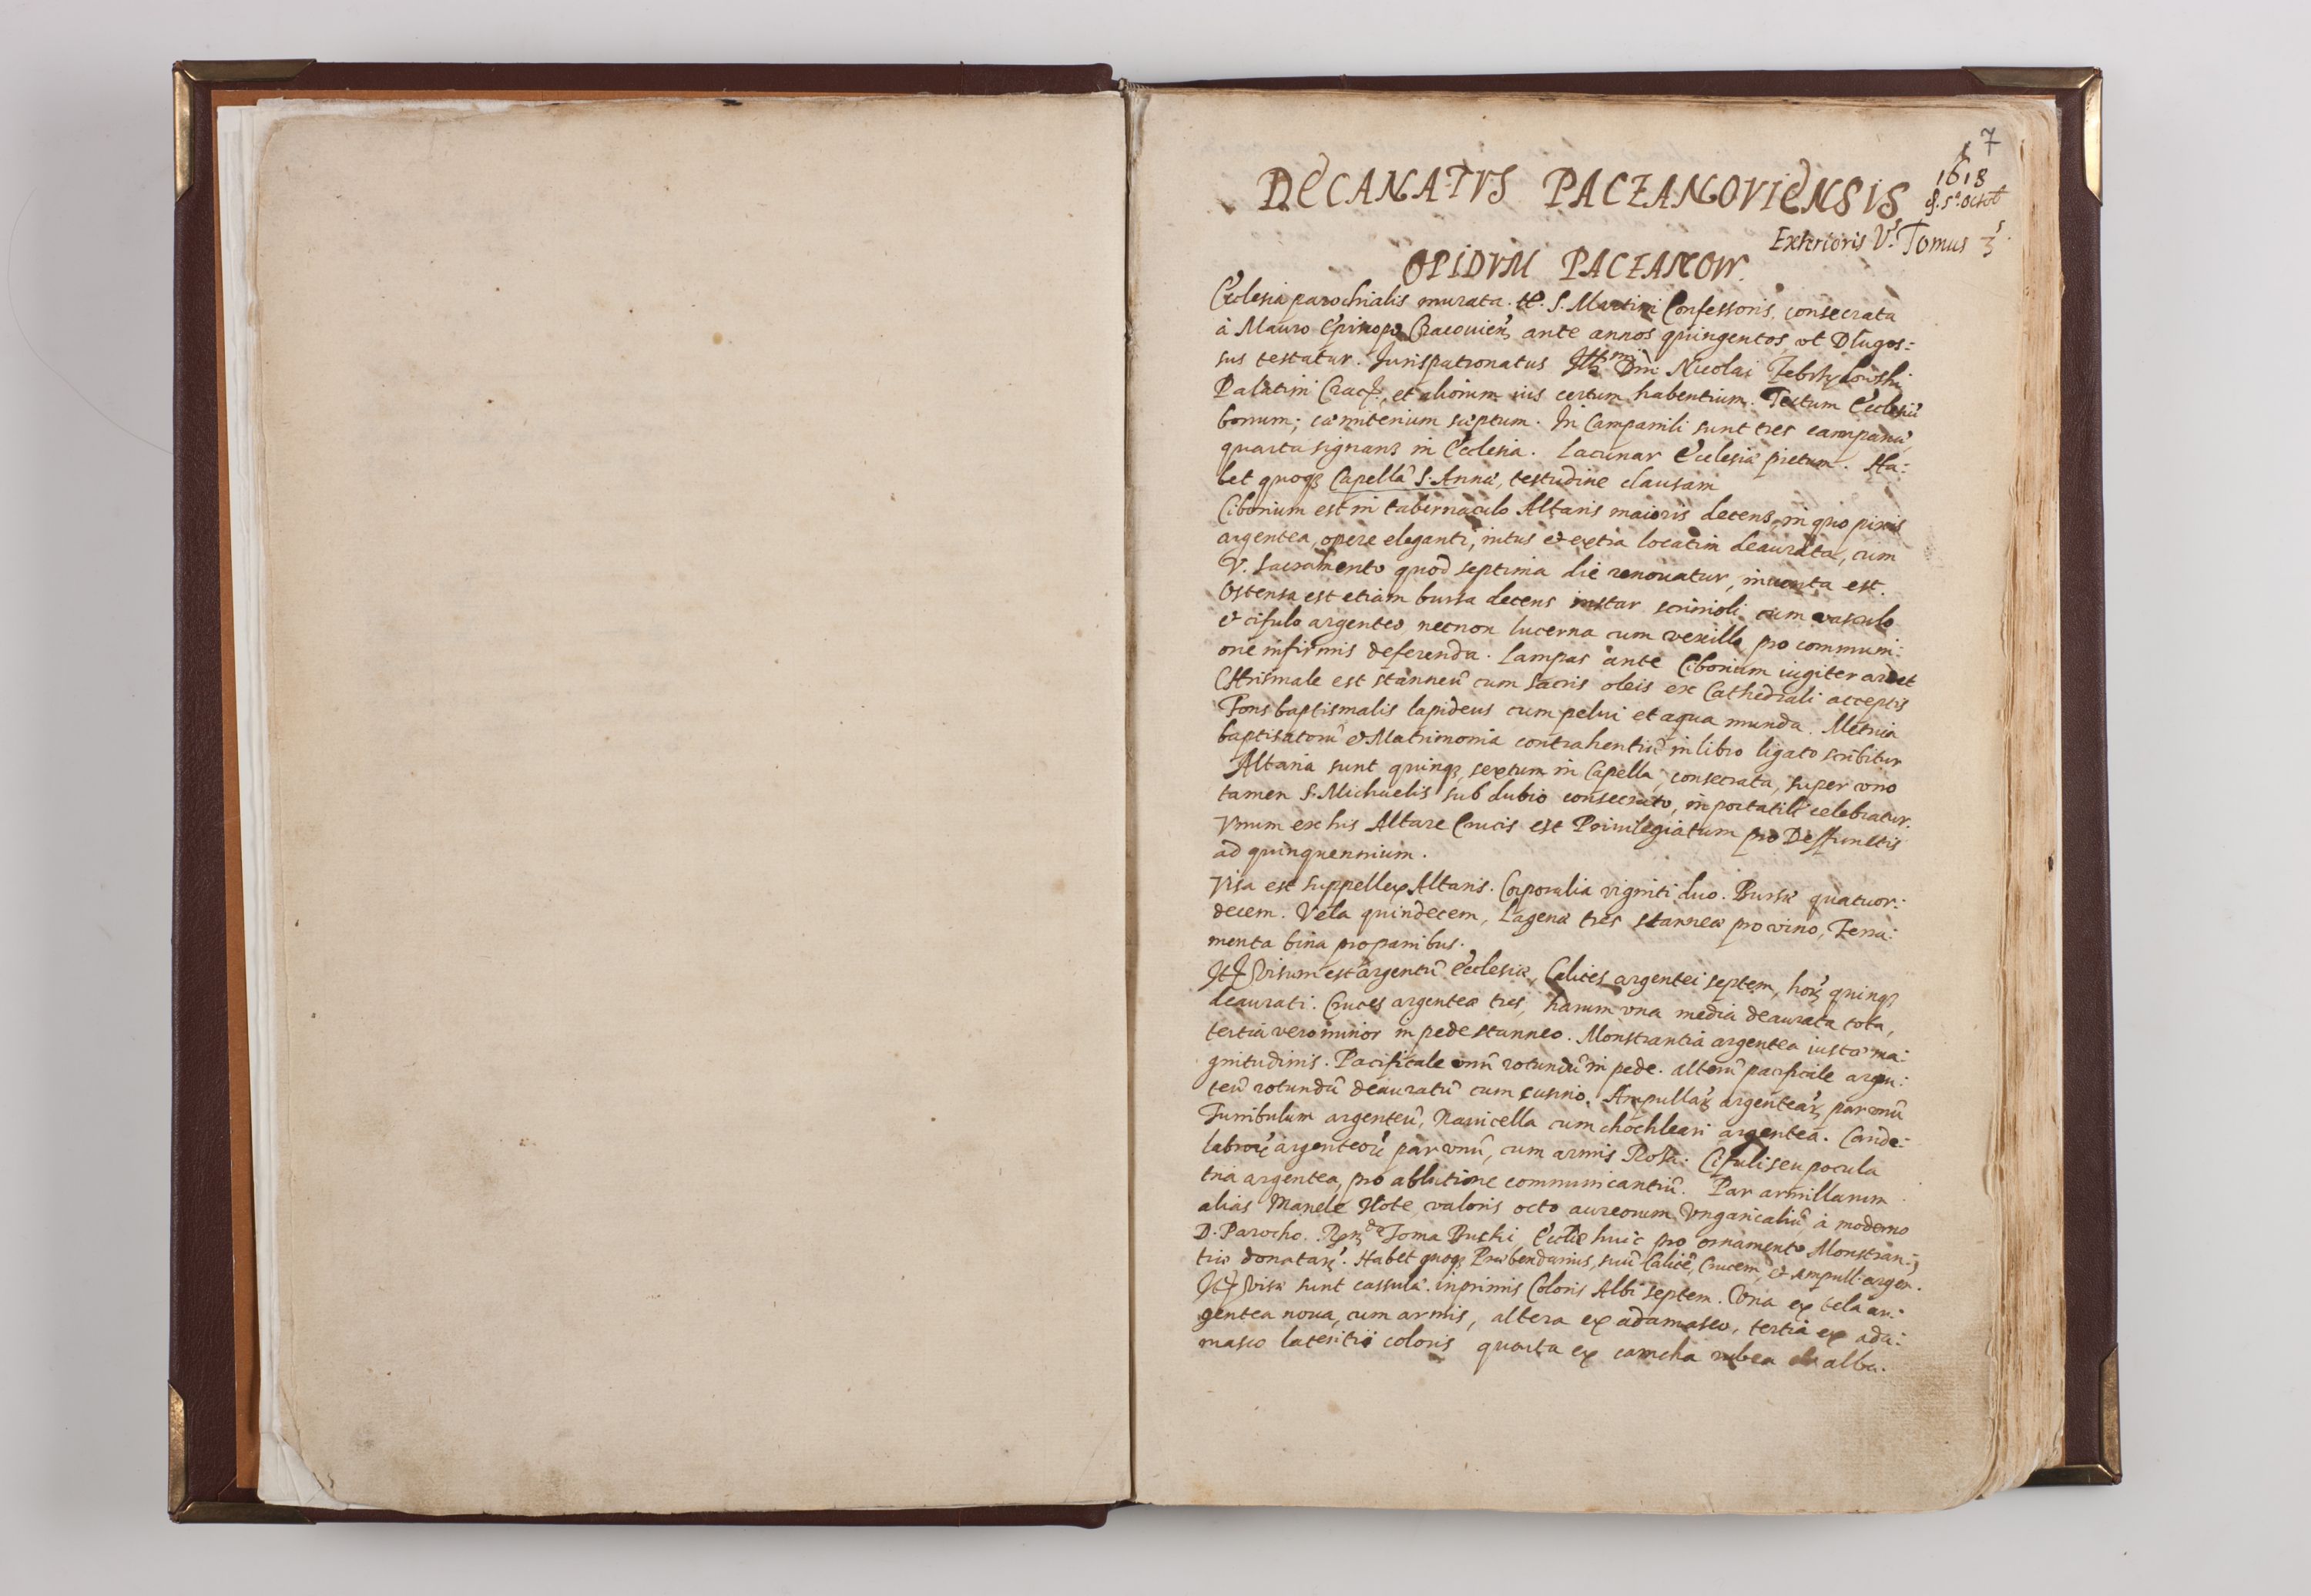 7
DECANATVS PACZANOVIENSIS
1618
8. 5a. octob
Exterioris V. Tomus 3
OPIDVM PACZANOW.
Ecclesia parochialis murata. tt. S. Martini Confessoris, consecrata
à Mauro Episcopo Cracouien̄, ante annos quingentos, vt Dlugos=
sus testatur. Jurispatronatus Illmi Dni Nicolai Zebrzydowski
Palatini Crac, et aliorum ius certum habentium. Tectum Ecclesiæ
bonum; cæmiterium sæptum. In Campanili sunt tres campanæ,
quarta signans in Ecclesia. Lacunar Ecclesiæ pictum. Ha:
bet quoqȝ Capellā S. Annæ, testudine clausam
Ciborium est in tabernaculo Altaris maioris decens, in quo pixis
argentea, opere eleganti, intus et extra locatim deaurata, cum
V. Sacramento quod septima die renouatur, inuenta est.
Ostensa est etiam bursa decens instar scrinioli cum vasculo
et cifulo argenteo necnon lucerna cum vexillo pro communi:
one infirmis deferenda. Lampas ante Ciborium iugiter ardet
Chrismale est stanneū cum sacris oleis ex Cathedrali acceptis
Fons baptismalis lapideus cum pelui et aqua munda. Metrica
baptisatorū et Matrimonia contrahentiū in libro ligato scribitur
Altaria sunt quinqȝ, sextum in Capella, consecrata, super vno
tamen S. Michaelis sub dubio consecrato, in portatili celebratur.
Vnum ex his Altare Crucis est Priuilegiatum pro Deffunctis
ad quinquennium.
Visa est suppellex Altaris. Corporalia viginti duo. Bursæ quatuor:
decem. Vela quindecem, Lagenæ tres stanneæ pro vino, Ferra:
menta bina pro panibus.
It visum est argentū Ecclesiæ, Calices argentei septem, horȝ quinqȝ
deaurati. Cruces argenteæ tres, harum vna media deaurata tota,
tertia vero minor in pede stanneo. Monstrantia argentea iustæ ma:
gnitudinis. Pacificale vnū rotundū in pede. alterū pacificale argen:
teū rotundū deauratū cum Ampullaȝ argenteaȝ par vnū
Turribulum argenteū, Nauicella cum chochleari argentea. Cande:
labrorȝ argenteorȝ par vnū, cum armis Rosa. Cifuli seu pocula
tria argentea, pro ablutione communicantiū. Par armillarum
alias Manele złote valoris octo aureorum Vngaricaliū à moderno
D. Parocho. Toma Buski, Ecclæ huic pro ornamento Monstran:
tiæ donatarȝ. Habet quoqȝ Præbendarius, suū Calicē, Crucem, et ampull: argen.
It visæ sunt cassulæ. inprimis Coloris Albi septem. Vna ex tela ar:
gentea noua, cum armis, altera ex adamasco, tertia ex ada:
masco lateritii coloris quarta ex camcha rubea alba.